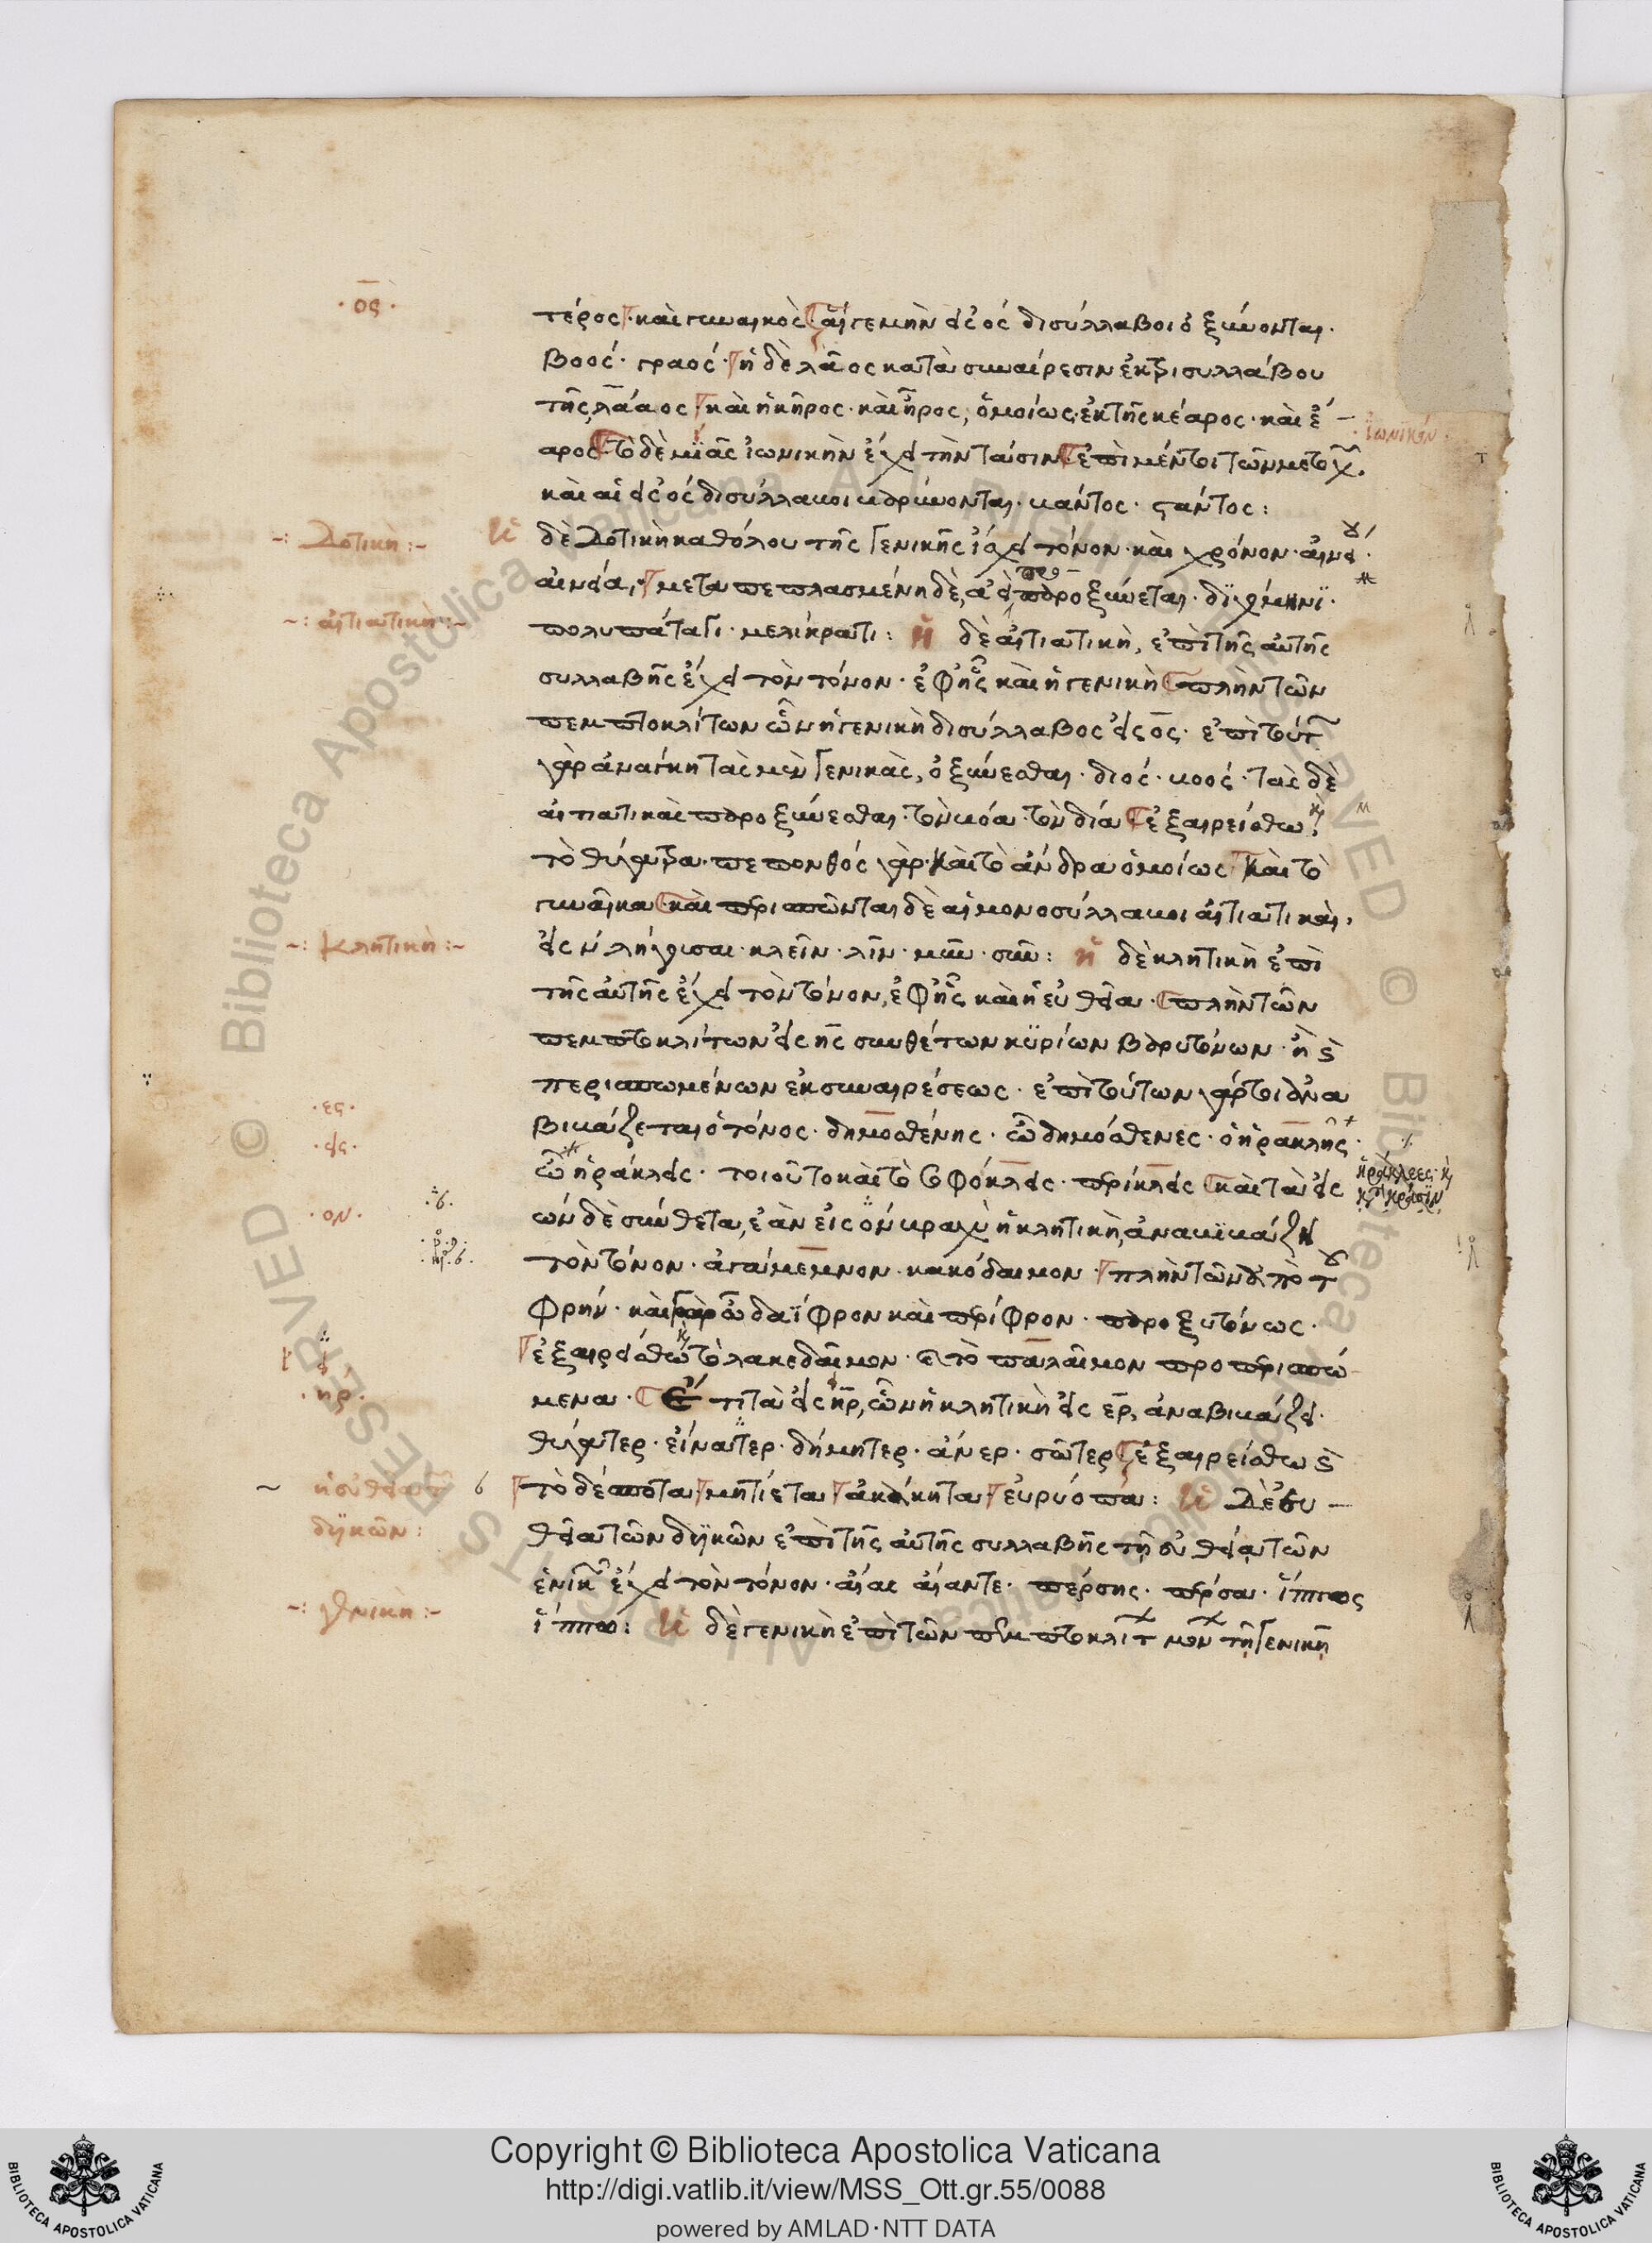 ·ος·
τέρος· καὶ γυναικὸς· αἵγε μὴν εἰς ος δισύλλαβοι ὀξύνονται·
βοός· γραός· ἡ δὲ λᾶος κατὰ συναίρεσιν ἐκ τρισυλλάβου
τῆς λάαος καὶ ἡ κῆρος· καὶ ἦρος, ὁμοίως ἐκ τῆς κέαρος· καὶ ἔ-
ἰωνικόν
αρος τὸ δὲ μιᾶς ἰωνικὴν ἔχει τὴν τάσιν ἐπὶ μέντοι τῶν μετοχ
καὶ αἱ εἰς ος δισύλλαβοι βαρύνονται· βάντος· στάντος:
-: Δοτικὴ :-
Ἡ δὲ Δοτικὴ καθόλου τῆς γενικῆς ἴσχει τόνον· καὶ χρόνον· αἰνεί
αἰνεία, μεταπεπλασμένη δὲ, ἀεὶ προξύνεται· διχόμηνϊ·
~: αἰτιατικὴ :~
πολυπάταγι· μελίκρατι: Ἡ δὲ αἰτιατικὴ, ἐπὶ τῆς αὐτῆς
συλλαβῆς ἔχει τὸν τόνον· ἐφ' ἧς καὶ ἡ γενικὴ πλὴν τῶν
πεμπτοκλίτων ὧν ἡ γενικὴ δισύλλαβος εἰς ος· ἐπὶ τούτ
γὰρ ἀνάγκη τὰς μὲν γενικὰς, ὀξύνεσθαι· διός· βοός· τὰς δὲ
αἰτιατικὰς προξύνεσθαι· τὸν βόα· τὸν δία ἐξαιρείσθω κ
τὸ θύγατρα· πεπονθός γάρ· καὶ τὸ ἄνδρα ὁμοίως καὶ τὸ
γυναῖκα καὶ περισπῶνται δὲ αἱ μονοσύλλαβοι αἰτιατικαὶ,
-: κλητικὴ :-
εἰς ν λήγουσαι· κλεῖν· λῖν· μῦν· σῦν: Ἡ δὲ κλητικὴ ἐπὶ
τῆς αὐτῆς ἔχει τὸν τόνον, ἐφ' ἧς καὶ ἡ εὐθεῖα· πλὴν τῶν
πεμπτοκλίτων εἰς ης συνθέτων κυρίων βαρυτόνων· ἢ κ
περισπωμένων ἐκ συναιρέσεως· ἐπὶ τούτων γάρ τοι ἀνα
·ες·
βιβάζεται ὁ τόνος· δημοσθένης· ὦ δημόσθενες· ὁ ἡρακλῆς·
·εις·
ὦ ἥρακλεις· τοιοῦτο καὶ τὸ σόφοκλεις· πέρικλεις καὶ τὰ εἰς
ἡράκλεες· κ
κτ κρᾶσιν
·ον·
ων δὲ σύνθετα, ἐὰν εἰς ον βραχὺ ἡ κλητικὴ, ἀναβιβάζει
τὸν τόνον· ἀγάμεμνον· κακόδαιμον· πλὴν τῶν ἀπὸ τοῦ
φρήν· καὶ γὰρ ὦ δαΐφρον καὶ περίφρον· παροξυτόνως·
ἐξαιρείσθω τὸ λακεδαῖμον· κ τὸ παλαῖμον προπερισπώ-
·ηρ·
μενα· Ἔτι τὰ εἰς ηρ, ὧν ἡ κλητικὴ εἰς ερ, ἀναβιβάζει·
θύγατερ· εἴνατερ· δήμητερ· ἄνερ· σῶτερ ἐξαιρείσθω κ
~ ἡ εὐθεῖα τ
τὸ δέσποτα μητίετα ἀκάκητα εὐρύοπα: Ἡ Δὲ εὐ-
δυϊκῶν:
θεῖα τῶν δυϊκῶν ἐπὶ τῆς αὐτῆς συλλαβῆς τῇ εὐθείᾳ τῶν
ἑνικ ἔχει τὸν τόνον· αἴας αἴαντε· πέρσης· πέρσα· ἵππος
-: γενικὴ :-
ἵππω: Ἡ δὲ γενικὴ ἐπὶ τῶν πεμπτοκλιτ μὲν τῇ γενικῇ
Copyright © Biblioteca Apostolica Vaticana
http://digi.vatlib.it/view/MSS_Ott.gr.55/0088
powered by AMLAD·NTT DATA
BIBLIOTECA APOSTOLICA VATICANA
BIBLIOTECA APOSTOLICA VATICANA